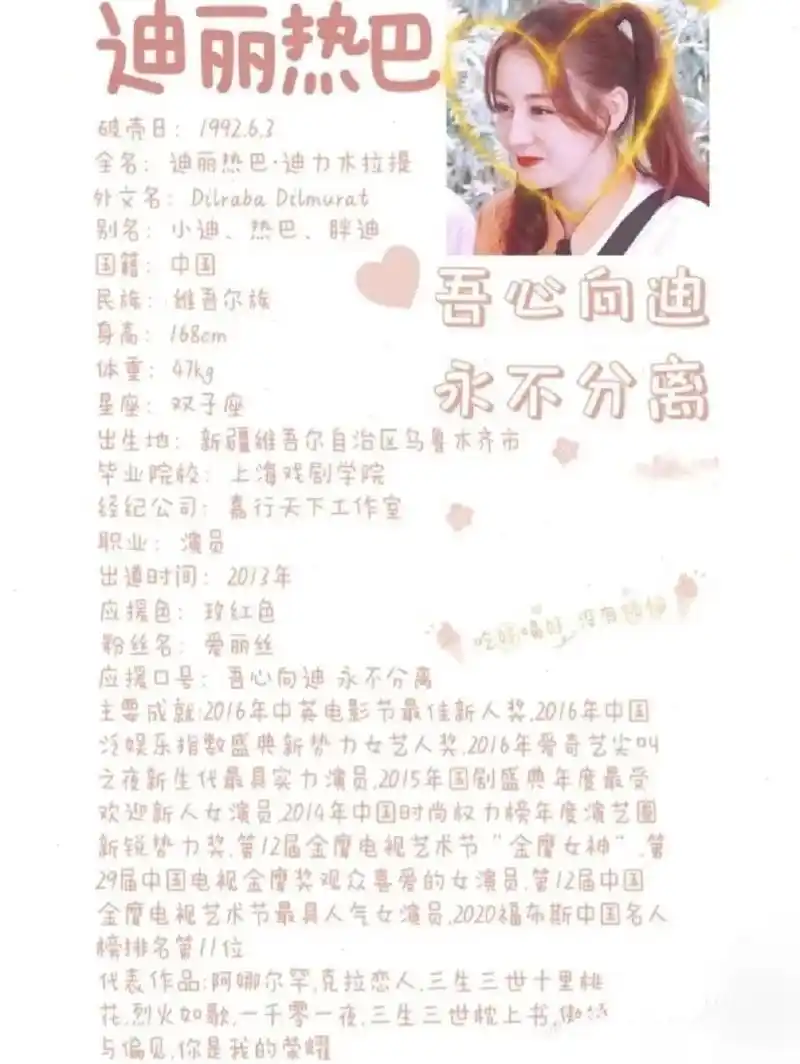 迪丽热巴
破壳日：1992.6.3
全名：迪丽热巴·迪力木拉提
外文名：Dilraba Dilmurat
别名：小迪、热巴、胖迪
国籍：中国
民族：维吾尔族
身高：168cm
体重：47kg
星座：双子座
吾心向迪
永不分离
出生地：新疆维吾尔自治区乌鲁木齐市
毕业院校：上海戏剧学院
经纪公司：嘉行天下工作室
职业：演员
出道时间：2013年
应援色：玫红色
粉丝名：爱丽丝
吃好喝好 没有
应援口号：吾心向迪 永不分离
主要成就:2016年中英电影节最佳新人奖,2016年中国
泛娱乐指数盛典新势力女艺人奖,2016年爱奇艺尖叫
之夜新生代最具实力演员,2015年国剧盛典年度最受
欢迎新人女演员,2014年中国时尚权力榜年度演艺圈
新锐势力奖,第12届金鹰电视艺术节“金鹰女神”,第
29届中国电视金鹰奖观众喜爱的女演员,第12届中国
金鹰电视艺术节最具人气女演员,2020福布斯中国名人
榜排名第11位
代表作品:阿娜尔罕,克拉恋人,三生三世十里桃
花,烈火如歌,一千零一夜,三生三世枕上书,
与偏见,你是我的荣耀